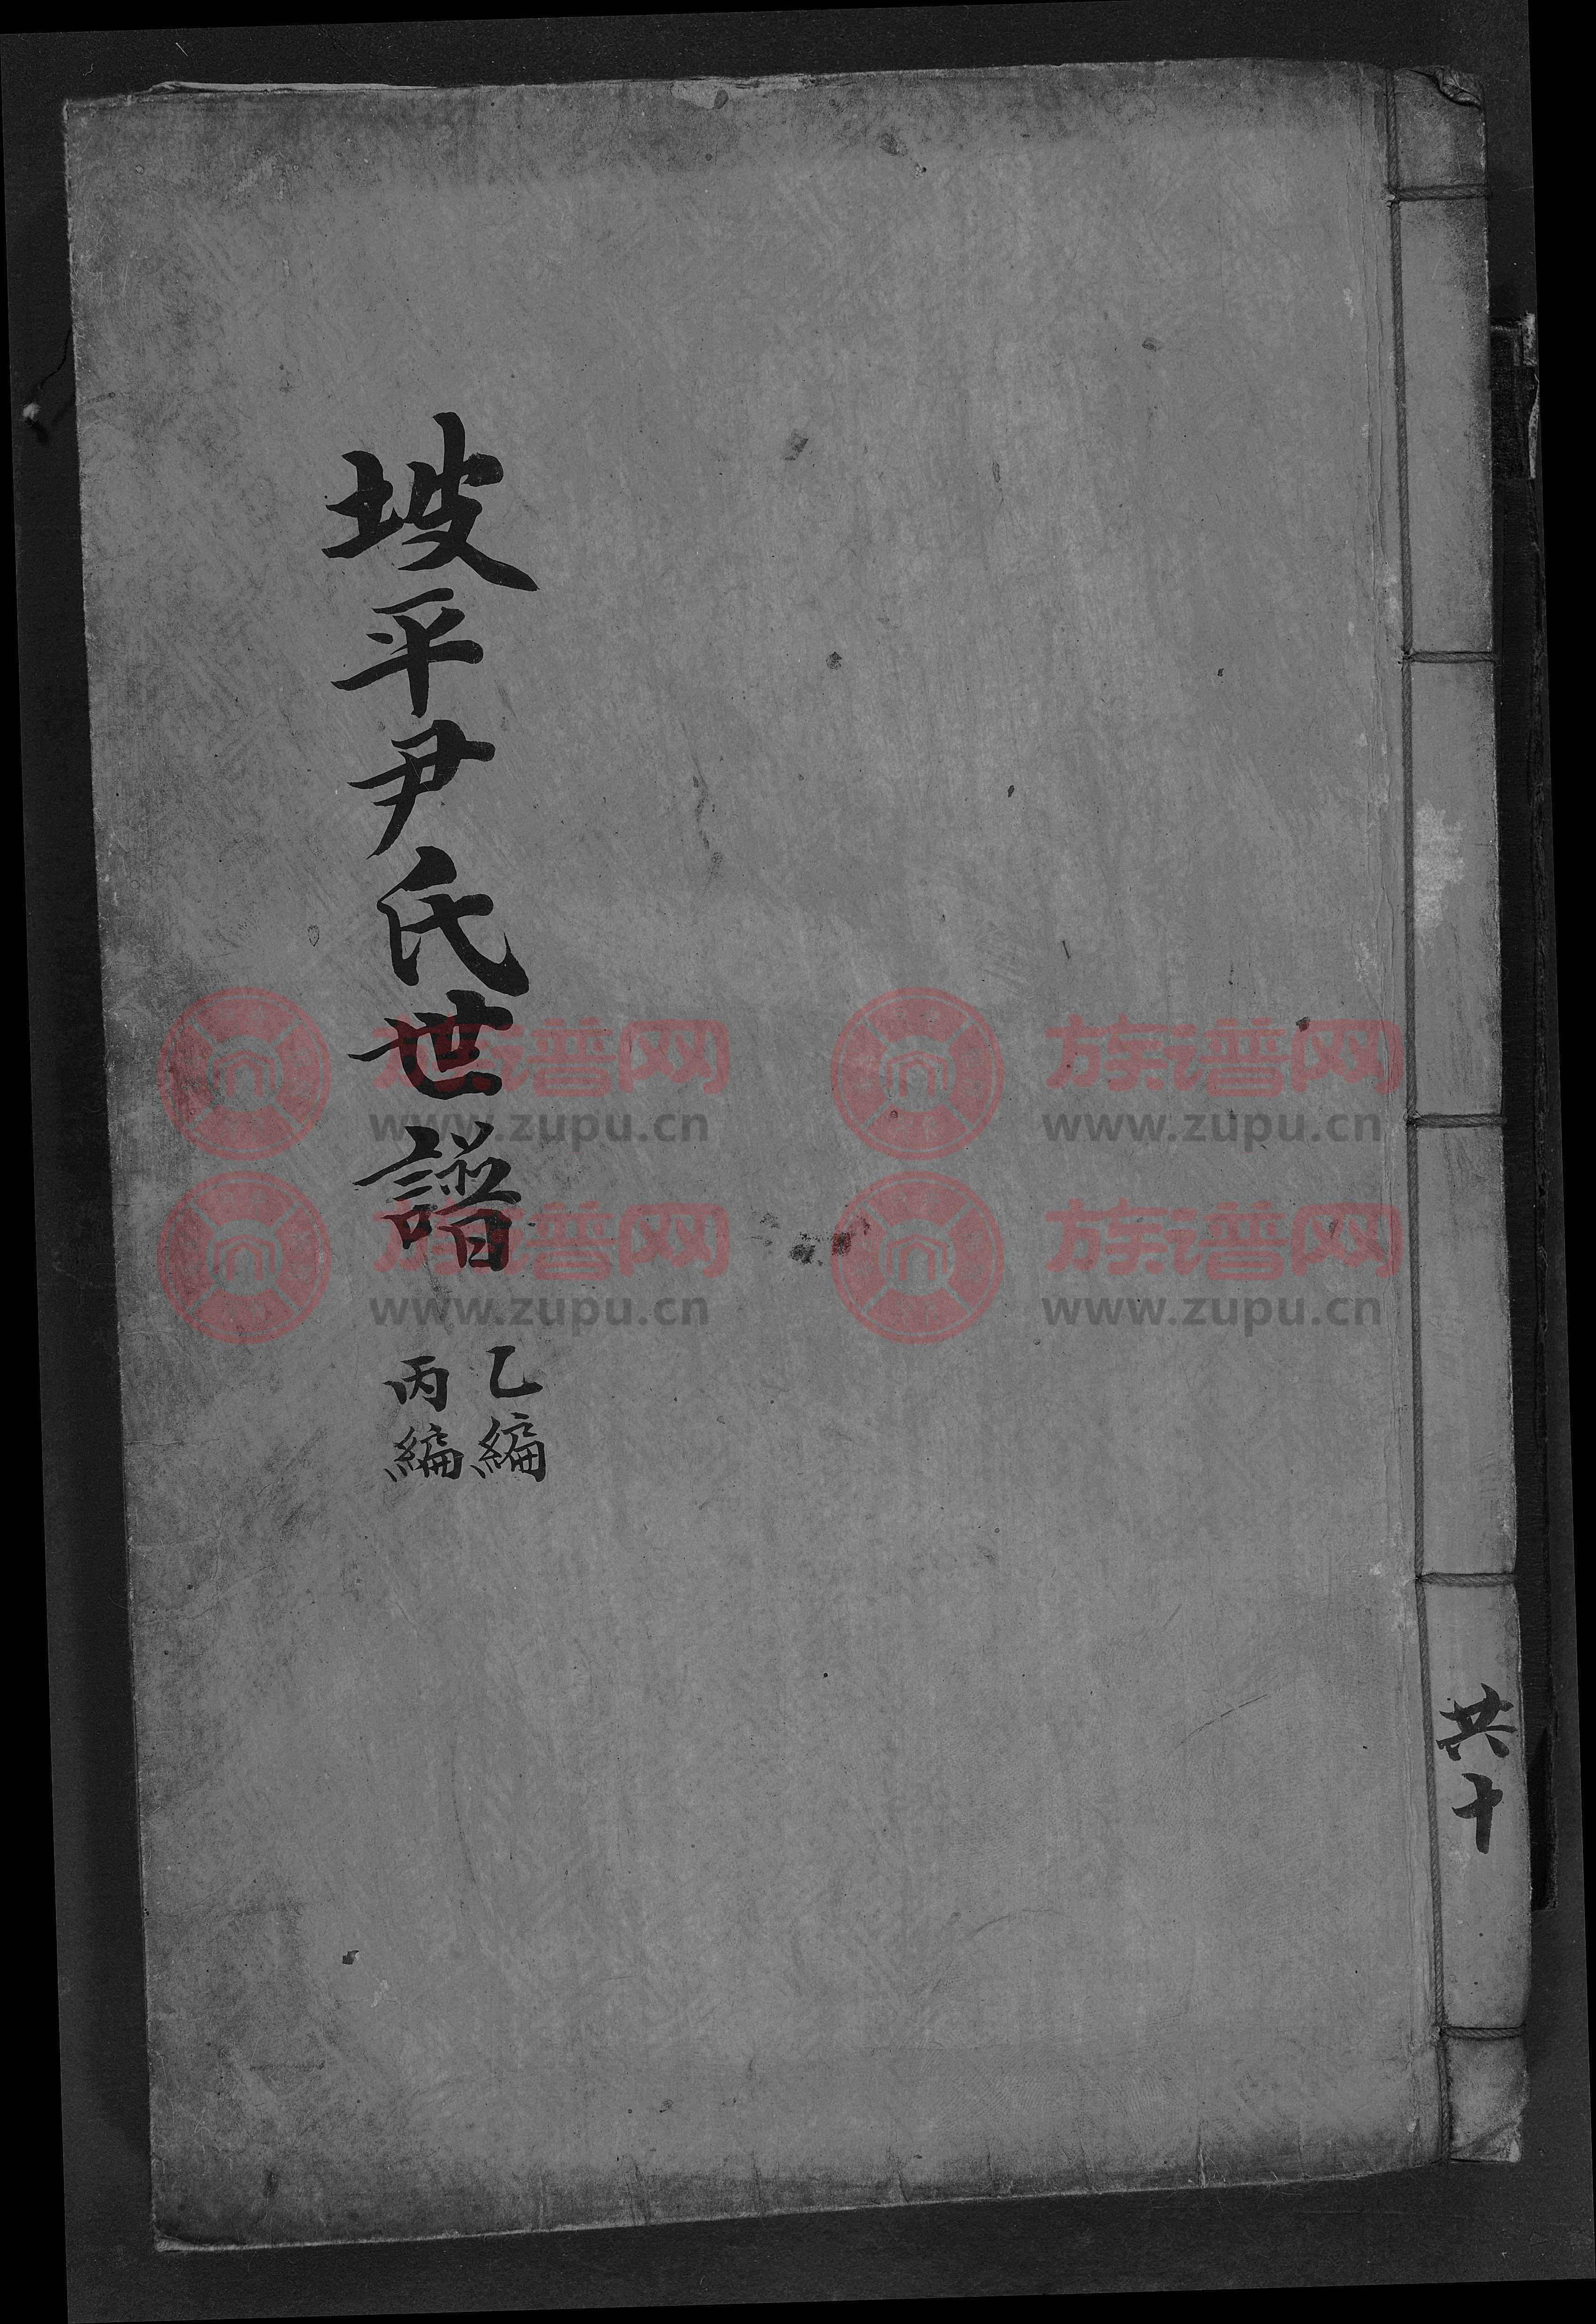 坡平尹氏世譜
乙編
丙編
共十
族谱网
www.zupu.cn
族谱网
www.zupu.cn
族谱网
www.zupu.cn
族谱网
www.zupu.cn